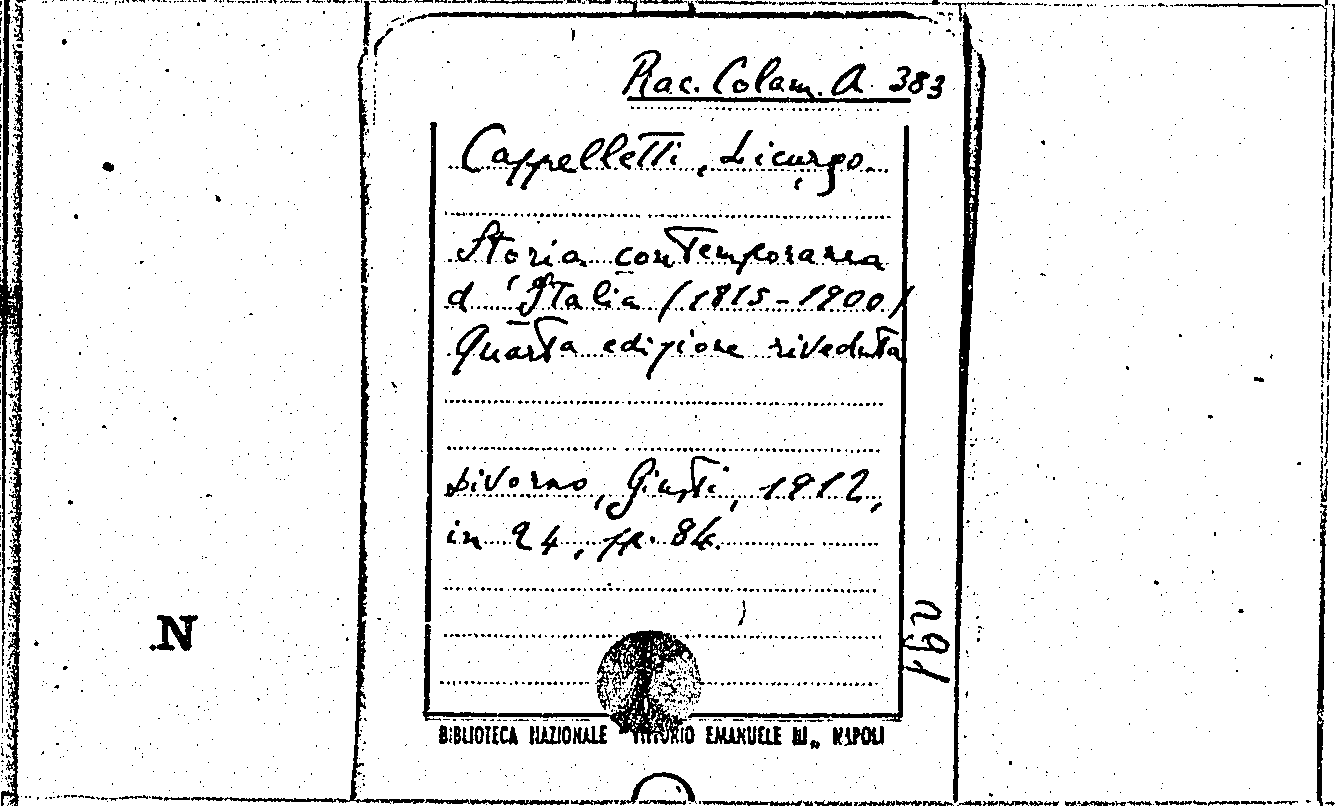 Rac. Colam. A 383
Cappelletti, Licurgo.
Storia contemporanea
d'Italia (1815-1900)
Quarta edizione riveduta
Livorno, Giusti, 1912,
in 24, pp. 84.
N
BIBLIOTECA NAZIONALE "VITTORIO EMANUELE III„ NAPOLI